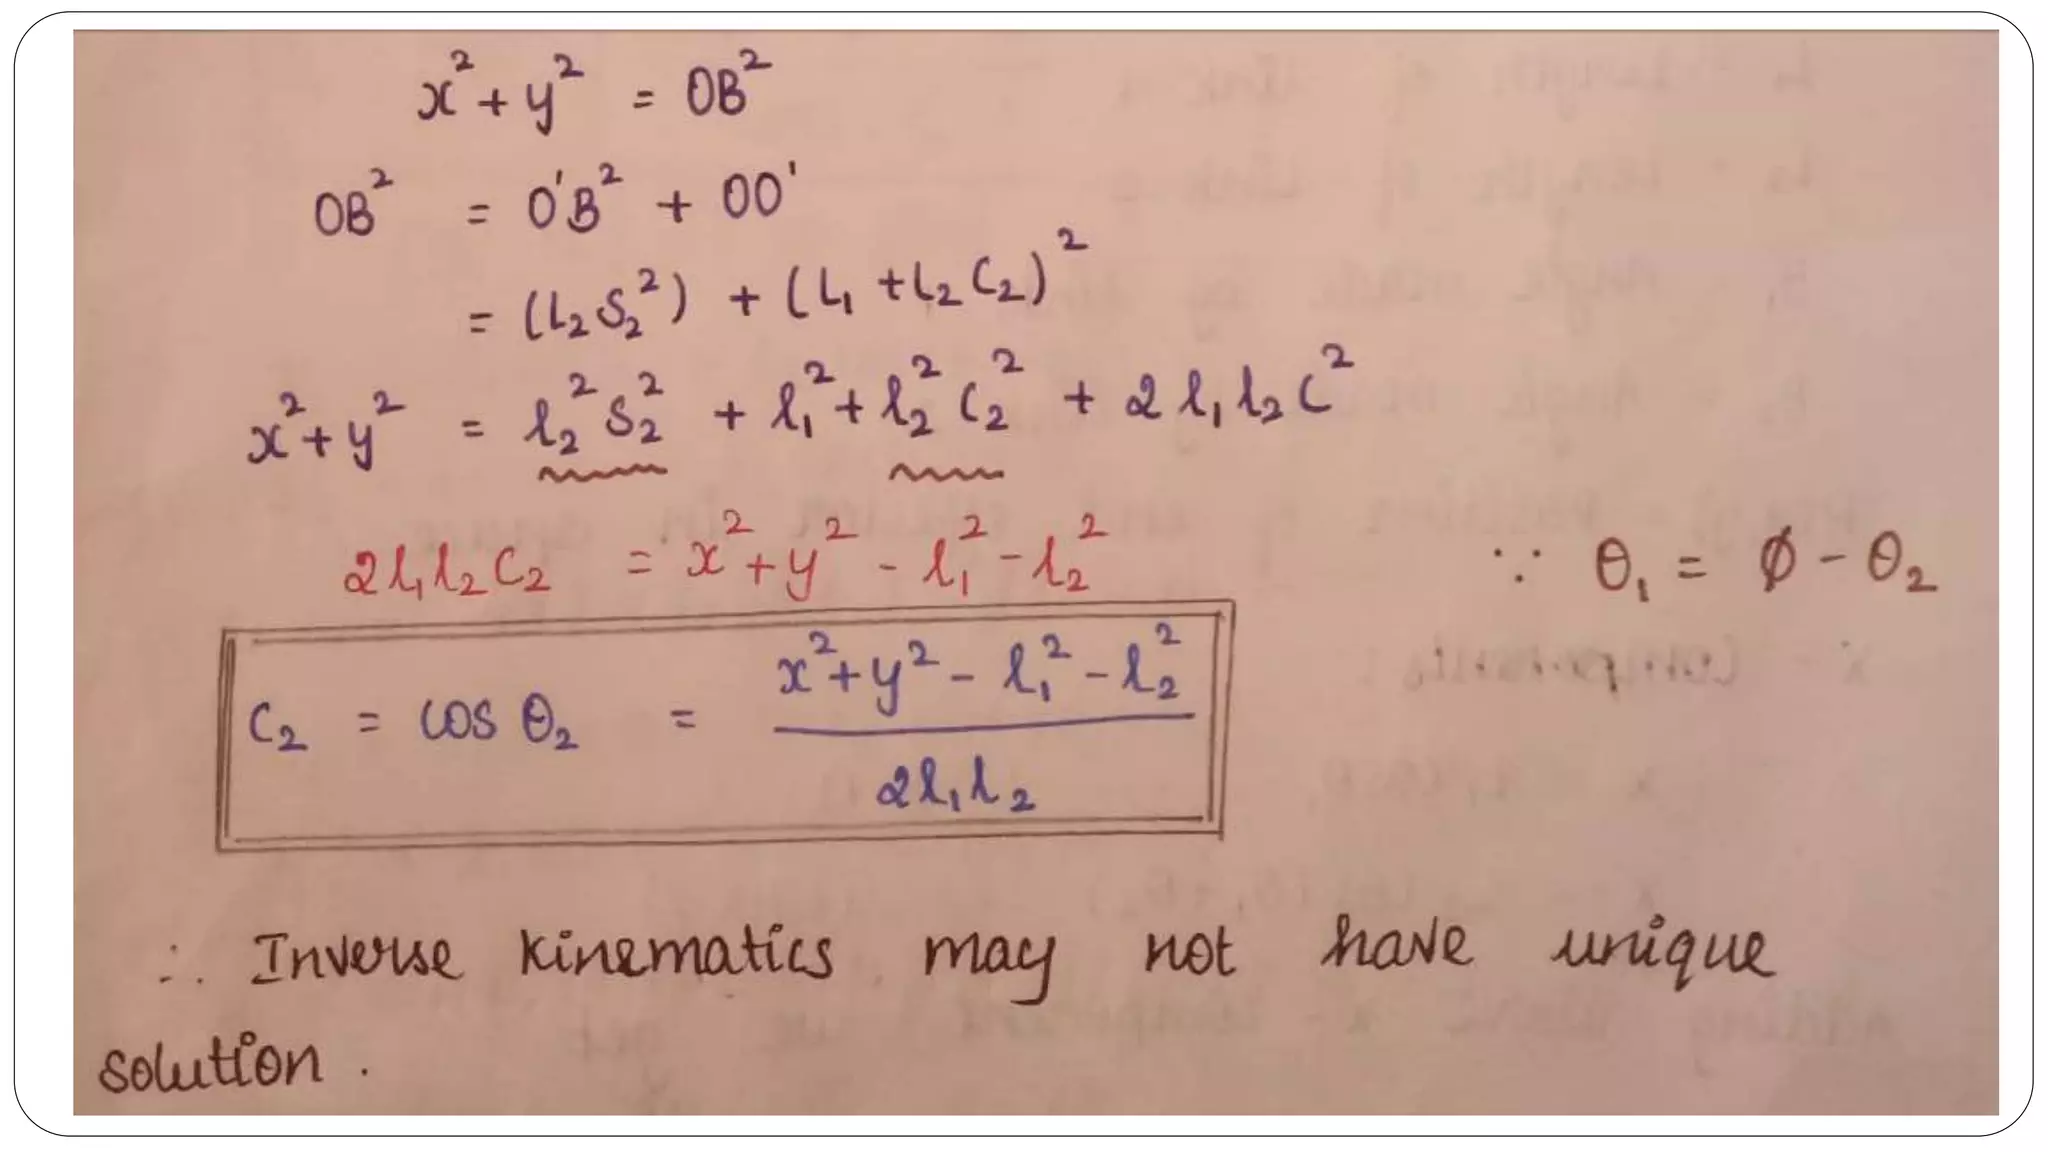 x²+y² = OB²
OB² = O'B² + OO'
= (L₂S₂²) + (L₁+L₂C₂)²
x²+y² = l₂²S₂² + l₁²+l₂²C₂² + 2l₁l₂C²
2l₁l₂C₂ = x²+y² - l₁² - l₂²
∵ θ₁ = Ø - θ₂
C₂ = cos θ₂ = x²+y² - l₁² - l₂² / 2l₁l₂
∴ Inverse kinematics may not have unique
solution.